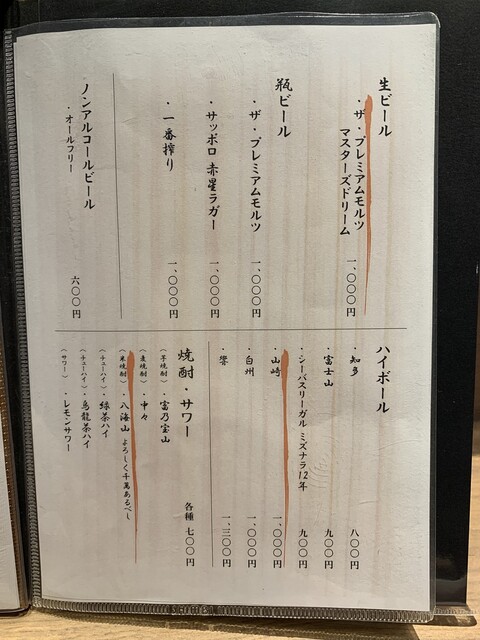 生ビール
・ザ・プレミアムモルツ
マスターズドリーム 一、〇〇〇円
瓶ビール
・ザ・プレミアムモルツ 一、〇〇〇円
・サッポロ 赤星ラガー 一、〇〇〇円
・一番搾り 一、〇〇〇円
ノンアルコールビール
・オールフリー 六〇〇円
ハイボール
・知多 八〇〇円
・富士山 九〇〇円
・シーバスリーガル ミズナラ12年 九〇〇円
・山崎 一、〇〇〇円
・白州 一、〇〇〇円
・響 一、三〇〇円
焼酎・サワー 各種 七〇〇円
(芋焼酎)・富乃宝山
(麦焼酎)・中々
(米焼酎)・八海山 よろしく千萬あるべし
(チューハイ)・緑茶ハイ
(チューハイ)・烏龍茶ハイ
(サワー)・レモンサワー